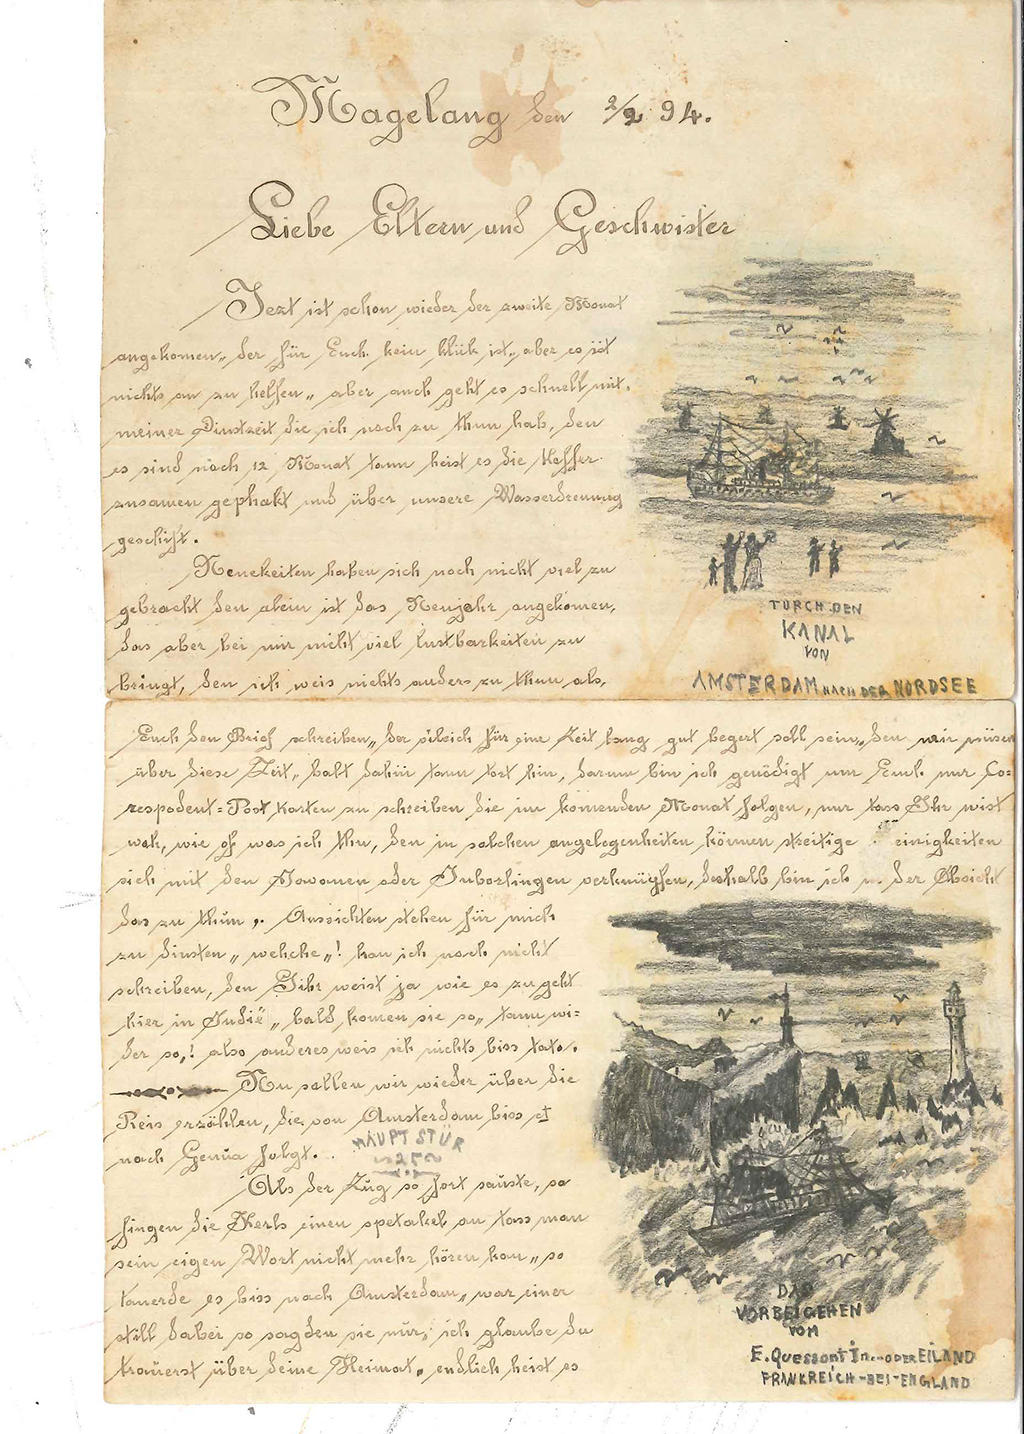 Magelang den 2/2 94.
Liebe Eltern und Geschwister
Jezt ist schon wieder der zweite Monat
angekomen„ der für Euch kein klük ist„ aber es ist
nichts an zu helfen„ aber auch geht es schnell mit
meiner Dinstzeit die ich noch zu thun hab, den
es sind noch 12 Monat tann heist es die Koffer
zusamen gephakt und über unsere Wasserdrennung
geschift.
Neuekeiten haben sich noch nicht viel zu
gebracht den alein ist das Neujahr angekomen,
das aber bei mir nicht viel lustbarkeiten zu
bringt, den ich weis nichts anders zu thun als,
TURCH DEN
KANAL
VON
AMSTERDAM NACH DER NORDSEE
Euch den Brief schreiben„ der gleich für eine Zeit lang gut begert soll sein„ den wir müsen
über diese Zeit„ balt dahin tann tort hin, darum bin ich genödigt um Euch nur Co-
respodent=Post Karten zu schreiben die im komenden Monat folgen, nur tass Ihr wist
wok, wie of was ich thu, den in solchen angelegenheiten können streitige einigkeiten
sich mit den Jawonen oder Inborlingen verknüpfen, deshalb bin ich der Absicht
das zu thun„. Aussichten stehen für mich
zu dinsten„ welche„! kan ich noch nicht
schreiben, den Sihr weist ja wie es zu geht
hier in Indië„ bald komen sie so„ tann wi-
der so,! also anderes weis ich nichts biss tato.
Nu sollen wir wieder über die
Reis erzählen, die von Amsterdam biss
nach Genua folgt.
HAUPT STÜR
25
Als der Zug so fort sauste, so
fingen die Kerls einen spetakel an tass man
sein eigen Wort nicht mehr hören kon„ so
tauerde es biss nach Amsterdam„ war einer
still dabei so sagden sie nur, ich glaube du
trauerst über deine Heimat„ endlich heist es
DAS
VORBEIGEHEN
VOM
E. Quessant In.-ODER EILAND
FRANKREICH-BEI-ENGLAND